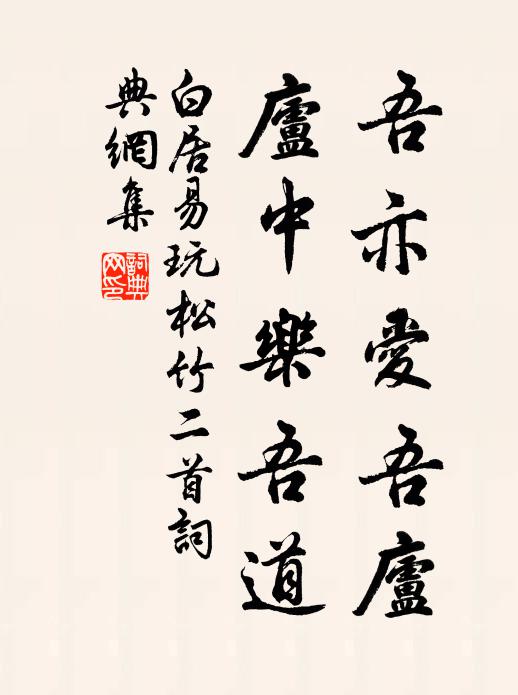 吾亦愛吾廬
廬中樂吾道
白居易玩松竹二首詞
典網集
詞典
网印